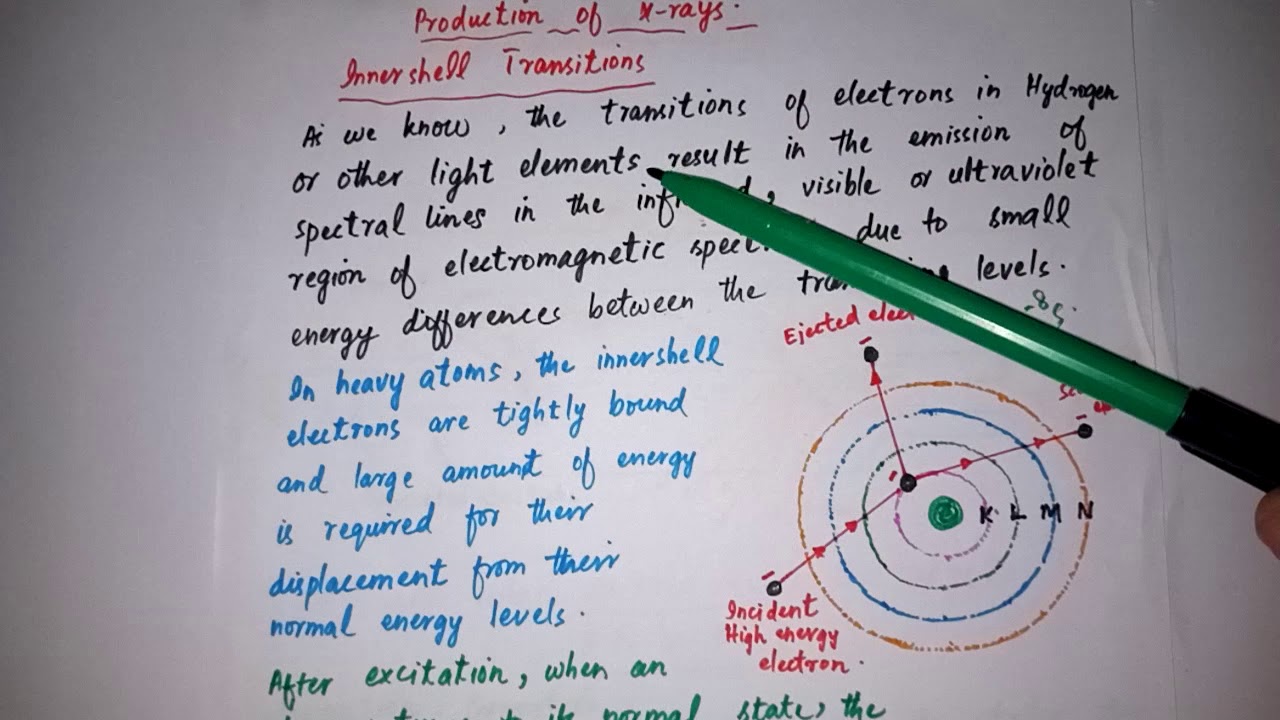 Production of X-rays.
Innershell Transitions
As we know, the transitions of electrons in Hydrogen
or other light elements result in the emission of
spectral lines in the visible or ultraviolet
region of electromagnetic due to small
energy differences between the levels.
In heavy atoms, the innershell
electrons are tightly bound
and large amount of energy
is required for their
displacement from their
normal energy levels.
After excitation, when an
its normal state, the
-8 s.
Ejected
K L M N
Incident
High energy
electron.